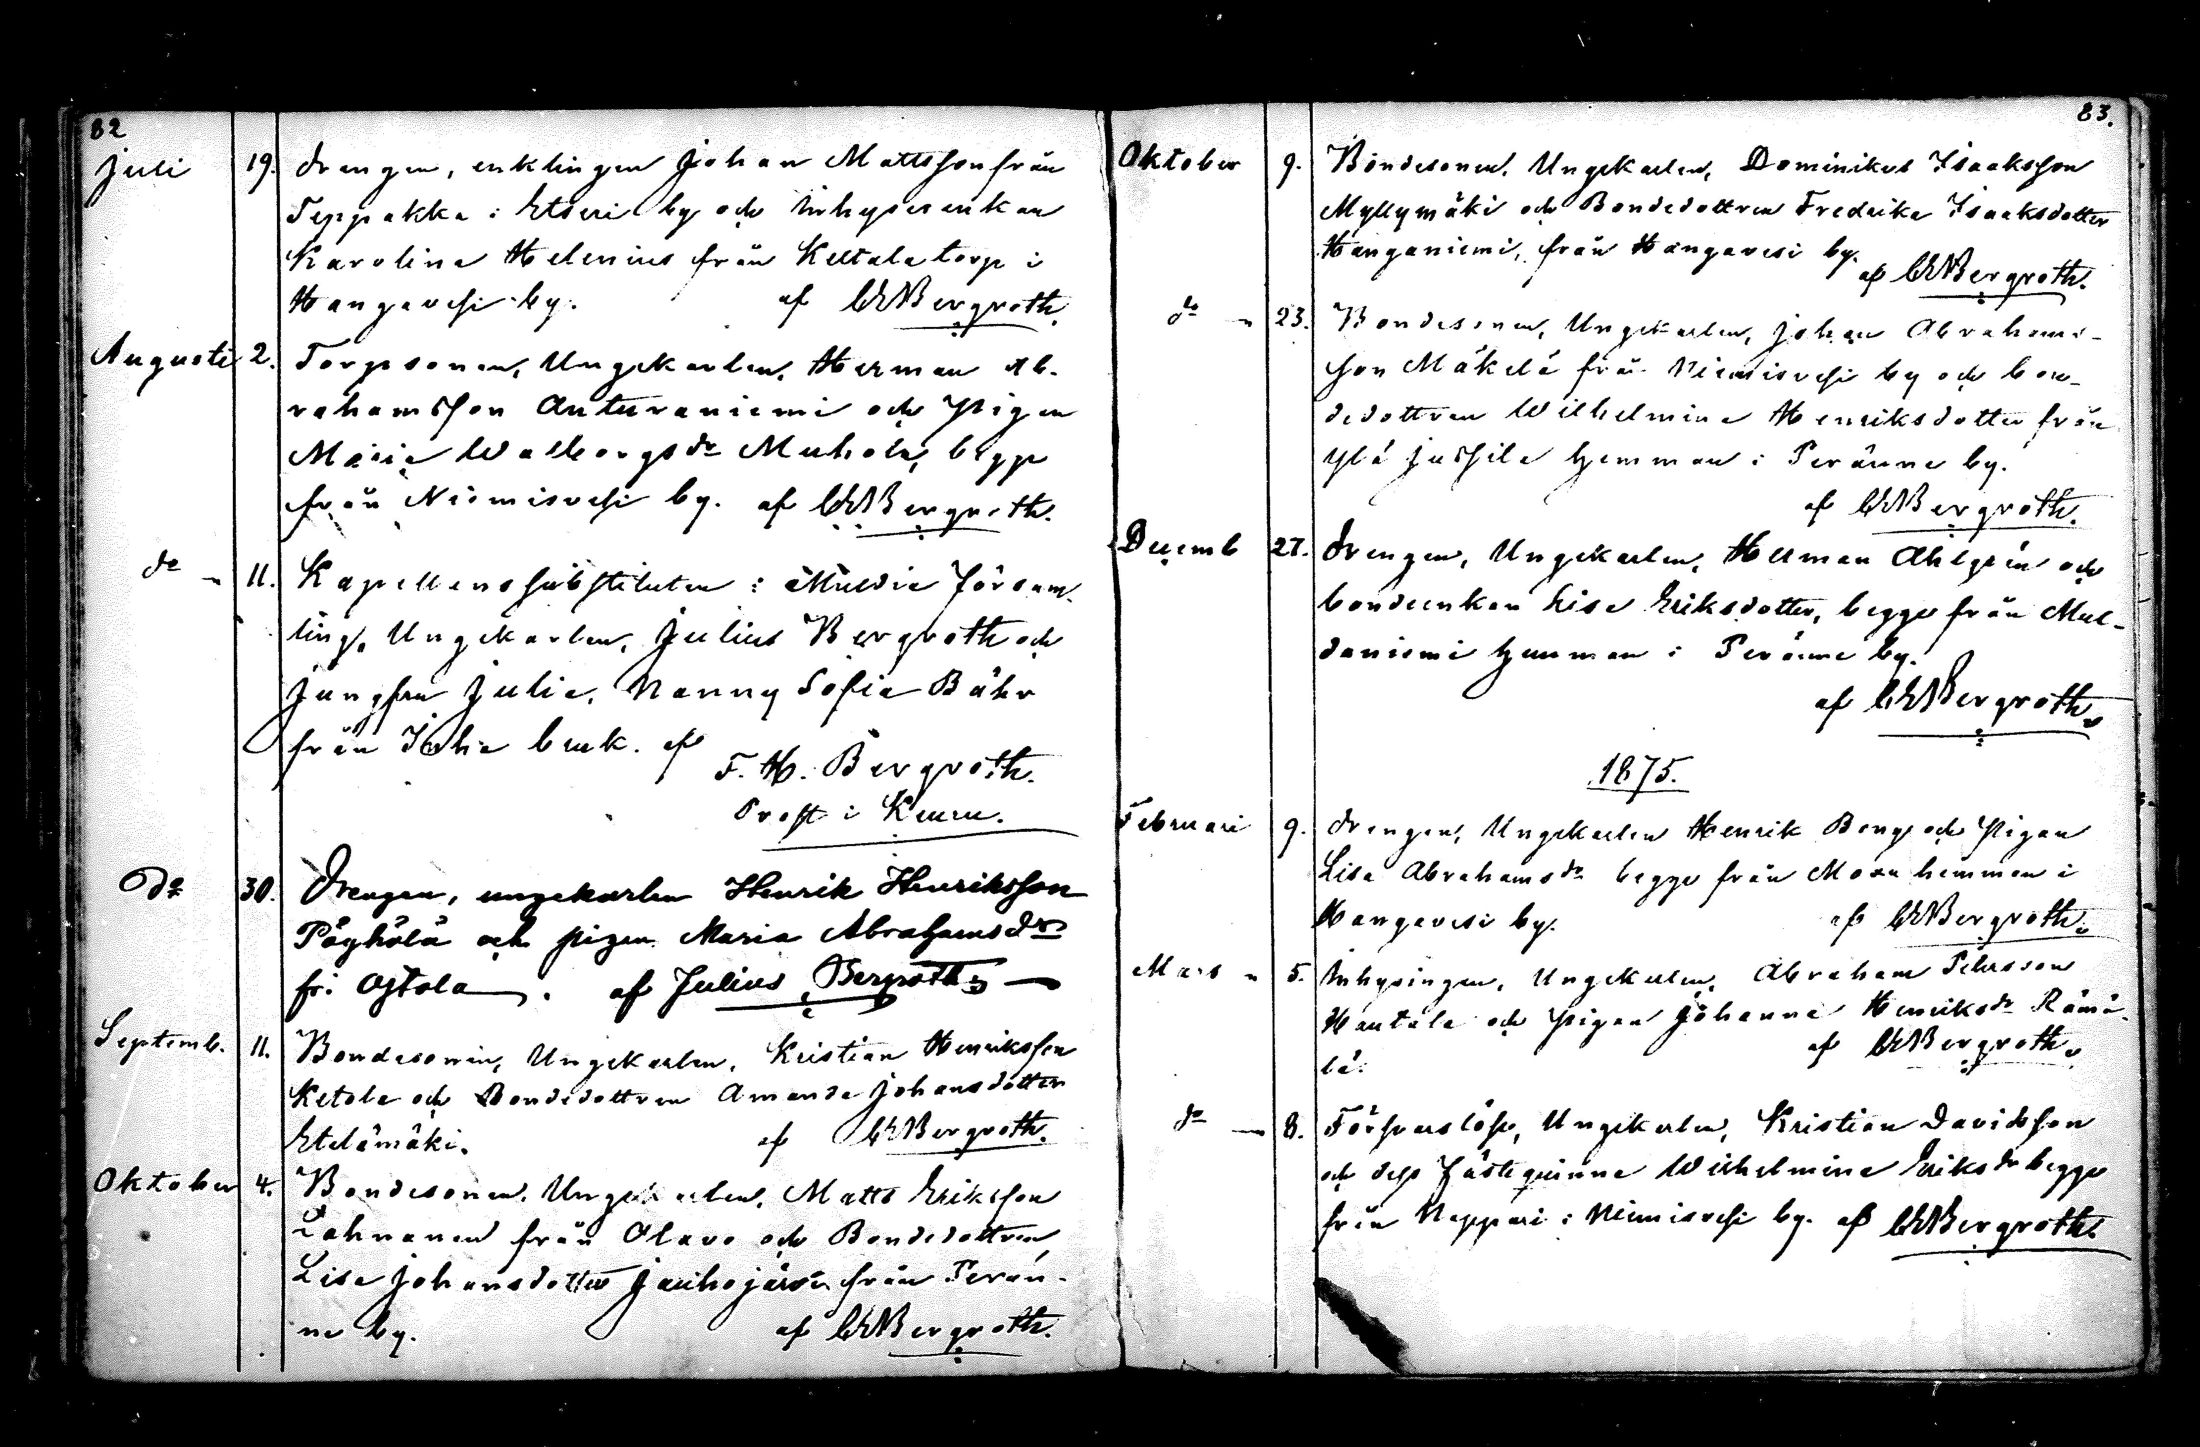 82
Juli 19. Drengen, enklingen Johan Mattsson från
Teppakka i Etseri by och Inhysesenkan
Karolina Helenius från Keltala torp i
Hangavesi by. af CEBergroth.
Augusti 2. Torpsonen, Ungekarlen, Herman Ab-
rahamsson Anturaniemi och Pigan
Maria Walborgsdr Muhola, begge
från Niemisvesi by. af CEBergroth.
do " 11. Kapellanssubstituten i Multia försam-
ling, Ungekarlen, Julius Bergroth och
Jungfru Julia, Nanny Sofia Bähr
från Inha bruk. af
F. H. Bergroth.
Prost i Keuru.
Do 30. Drengen, ungekarlen Henrik Henriksson
Pöyhölä och pigan Maria Abrahamsdr
fr: Ojtola. af Julius Bergroth
Septemb. 11. Bondesonen, Ungekarlen, Kristian Henriksson
Ketola och Bondedottren Amanda Johansdotter
Etelämäki. af CEBergroth.
Oktober 4. Bondesonen, Ungekarlen, Matts Eriksson
Lahnanen från Alavo och Bondedottren
Lisa Johansdotter Jauhojärvi från Perän-
ne by. af CEBergroth.
83.
Oktober 9. Bondesonen, Ungekarlen, Dominikus Isaaksson
Myllymäki och Bondedottren Fredrika Isaaksdotter
Hanganiemi, från Hangavesi by.
af CEBergroth.
do " 23. Bondesonen, Ungekarlen, Johan Abrahams-
son Mäkelä från Niemisvesi by och bon-
dedottren Wilhelmina Henriksdotter från
Ylä Jussila hemman i Peränne by.
af CEBergroth.
Decemb 27. Drengen, Ungekarlen, Herman Ahlgrén och
bondeenkan Lisa Eriksdotter, begge från Mul-
daniemi hemman i Peränne by.
af CEBergroth.
1875.
Februari 9. Drengen, Ungekarlen Henrik Bong och Pigan
Lisa Abrahamsdr begge från Moxu hemman i
Hangavesi by. af CEBergroth.
Mars " 5. Inhysingen, Ungekarlen, Abraham Petersson
Hautala och Pigan Johanna Henriksdr Rämä-
lä. af CEBergroth.
do 8. Försvarslöse, Ungekarlen, Kristian Davidsson
och dess fästeqvinna Wilhelmina Eriksdr begge
från Neppari i Niemisvesi by. af CEBergroth.